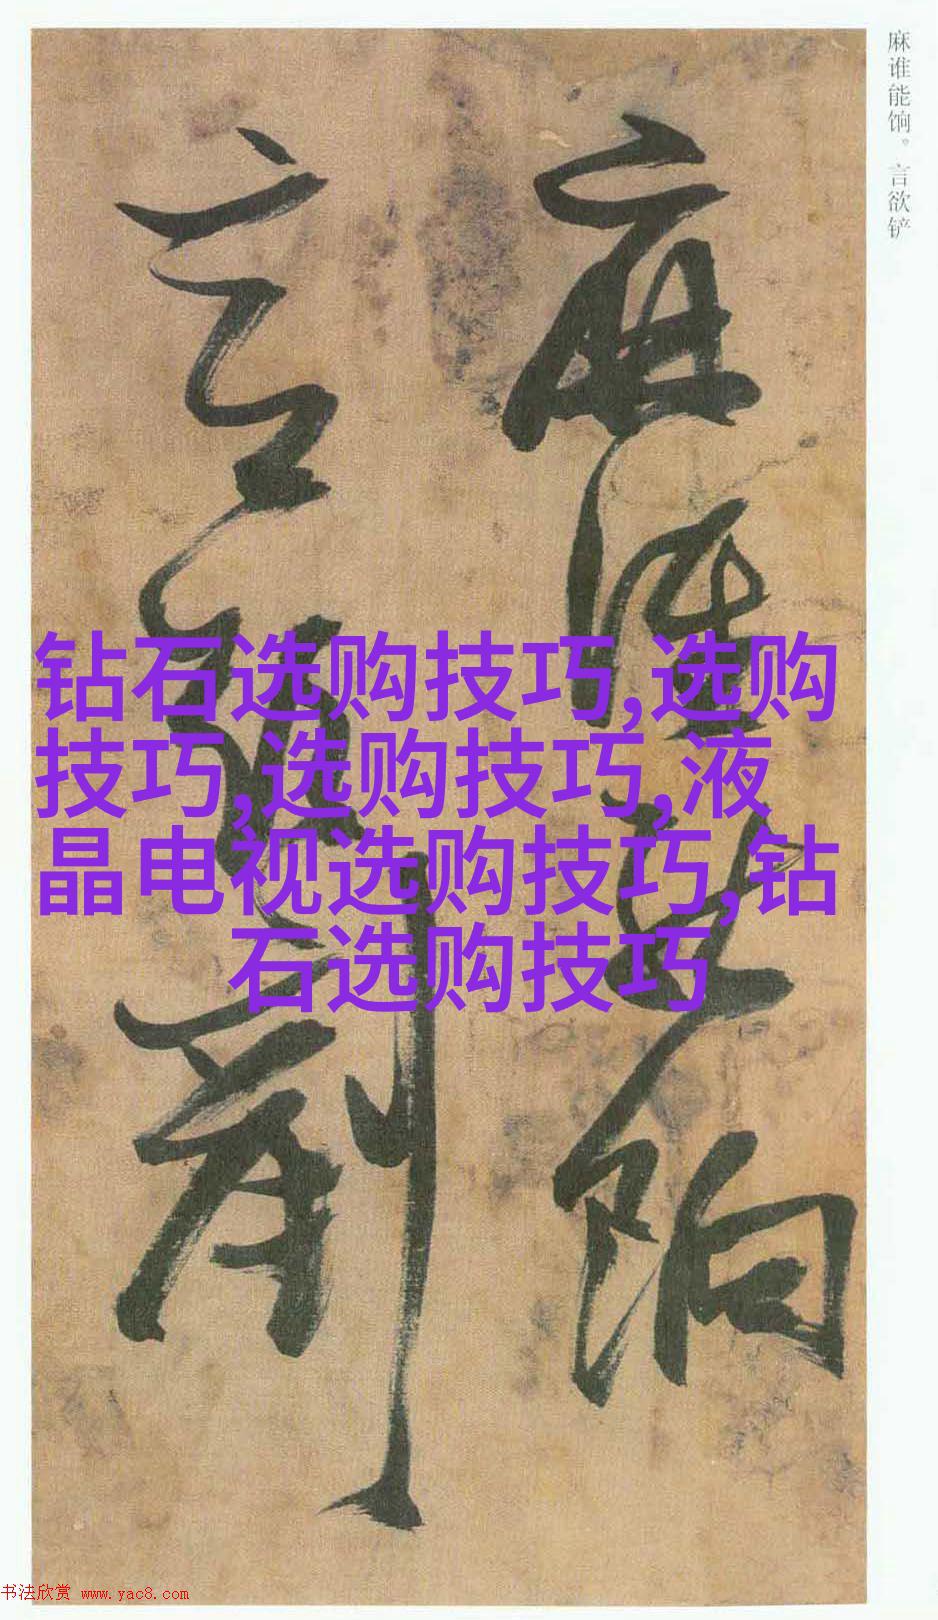 麻谁能饷。言欲铲
麻谁能饷
言欲剷
钻石选购技巧,选购
技巧,选购技巧,液
晶电视选购技巧,钻
石选购技巧
书法欣赏 www.yac8.com